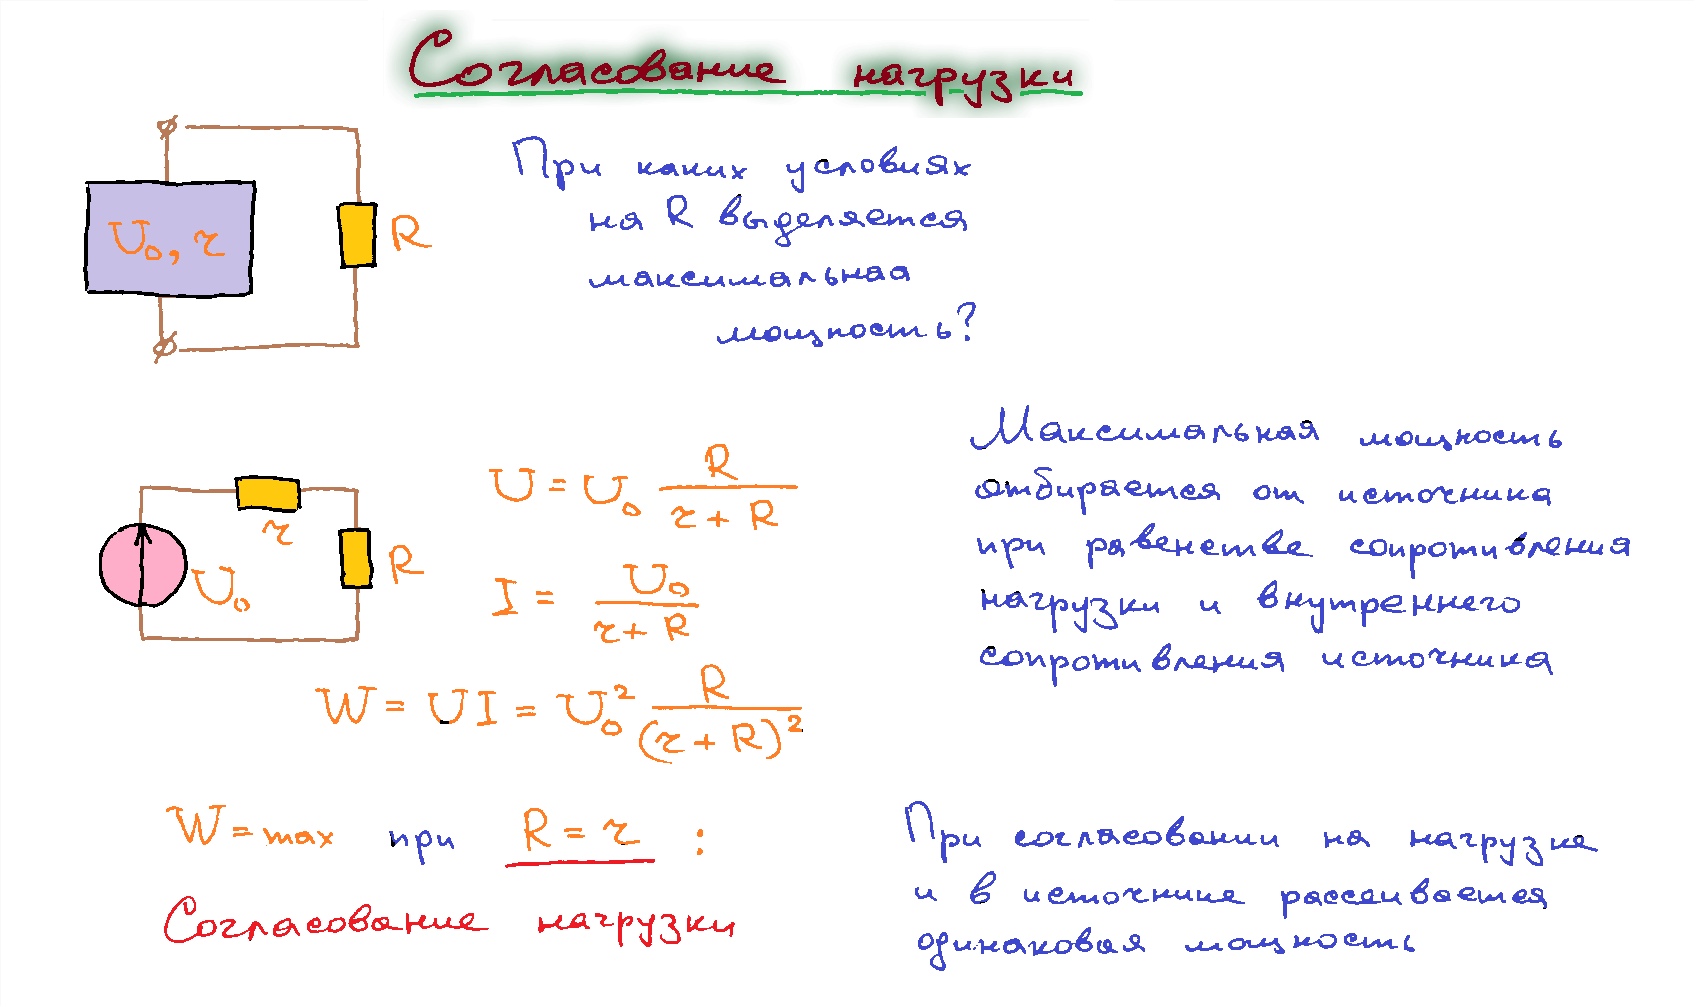 Согласование нагрузки
При каких условиях
на R выделяется
максимальная
мощность?
U₀, r
R
Максимальная мощность
отбирается от источника
при равенстве сопротивления
нагрузки и внутреннего
сопротивления источника
r
R
U₀
U = U₀ R / (r + R)
I = U₀ / (r + R)
W = UI = U₀² R / (r + R)²
W = max при R = r :
Согласование нагрузки
При согласовании на нагрузке
и в источнике рассеивается
одинаковая мощность